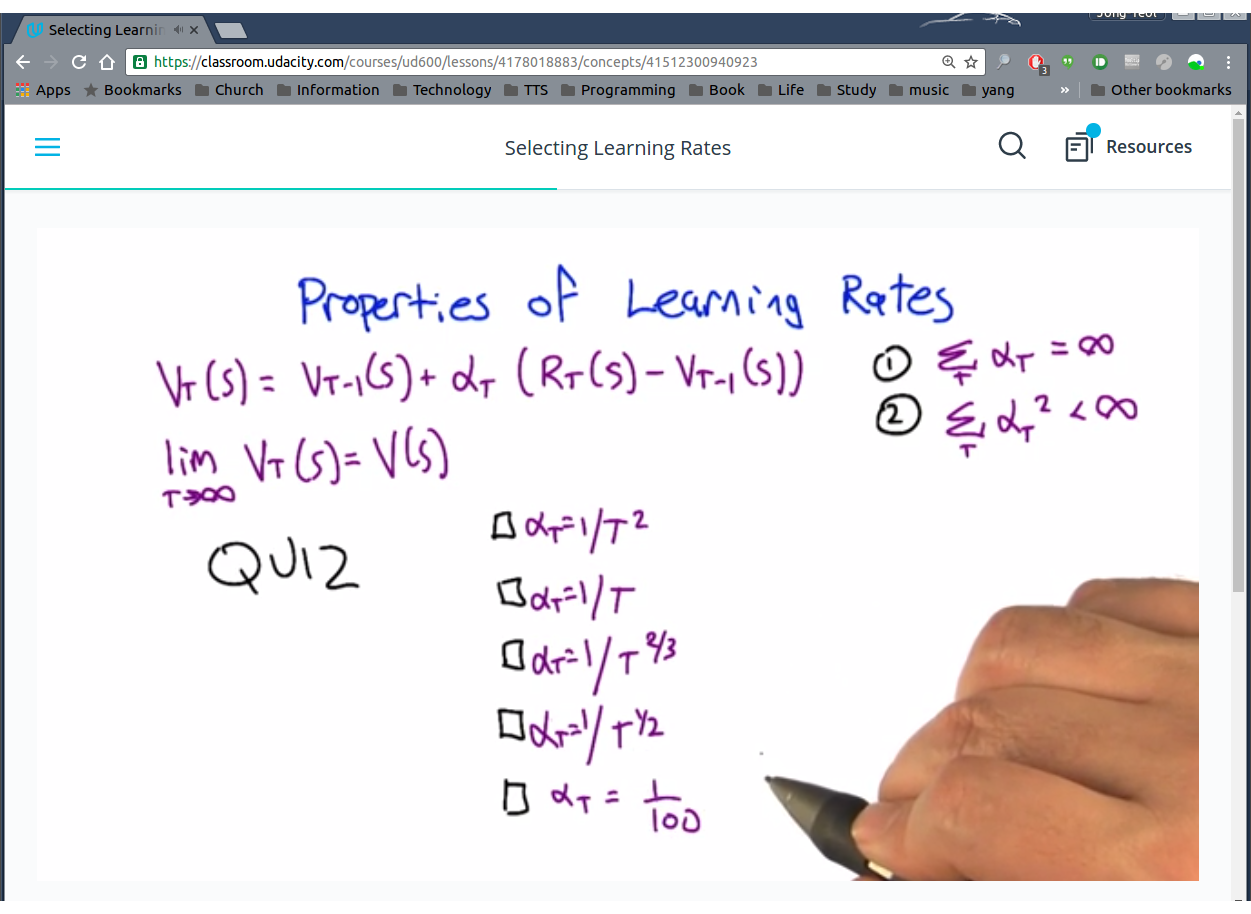 Selecting Learnin
Jong Yeol
https://classroom.udacity.com/courses/ud600/lessons/4178018883/concepts/41512300940923
3
Apps Bookmarks Church Information Technology TTS Programming Book Life Study music yang » Other bookmarks
Selecting Learning Rates
Resources
Properties of Learning Rates
V_T(S) = V_T-1(S) + α_T (R_T(S) - V_T-1(S))
① Σ_T α_T = ∞
② Σ_T α_T² < ∞
lim_T→∞ V_T(S) = V(S)
QUIZ
α_T=1/T²
α_T=1/T
α_T=1/T^2/3
α_T=1/T^1/2
α_T = 1/100